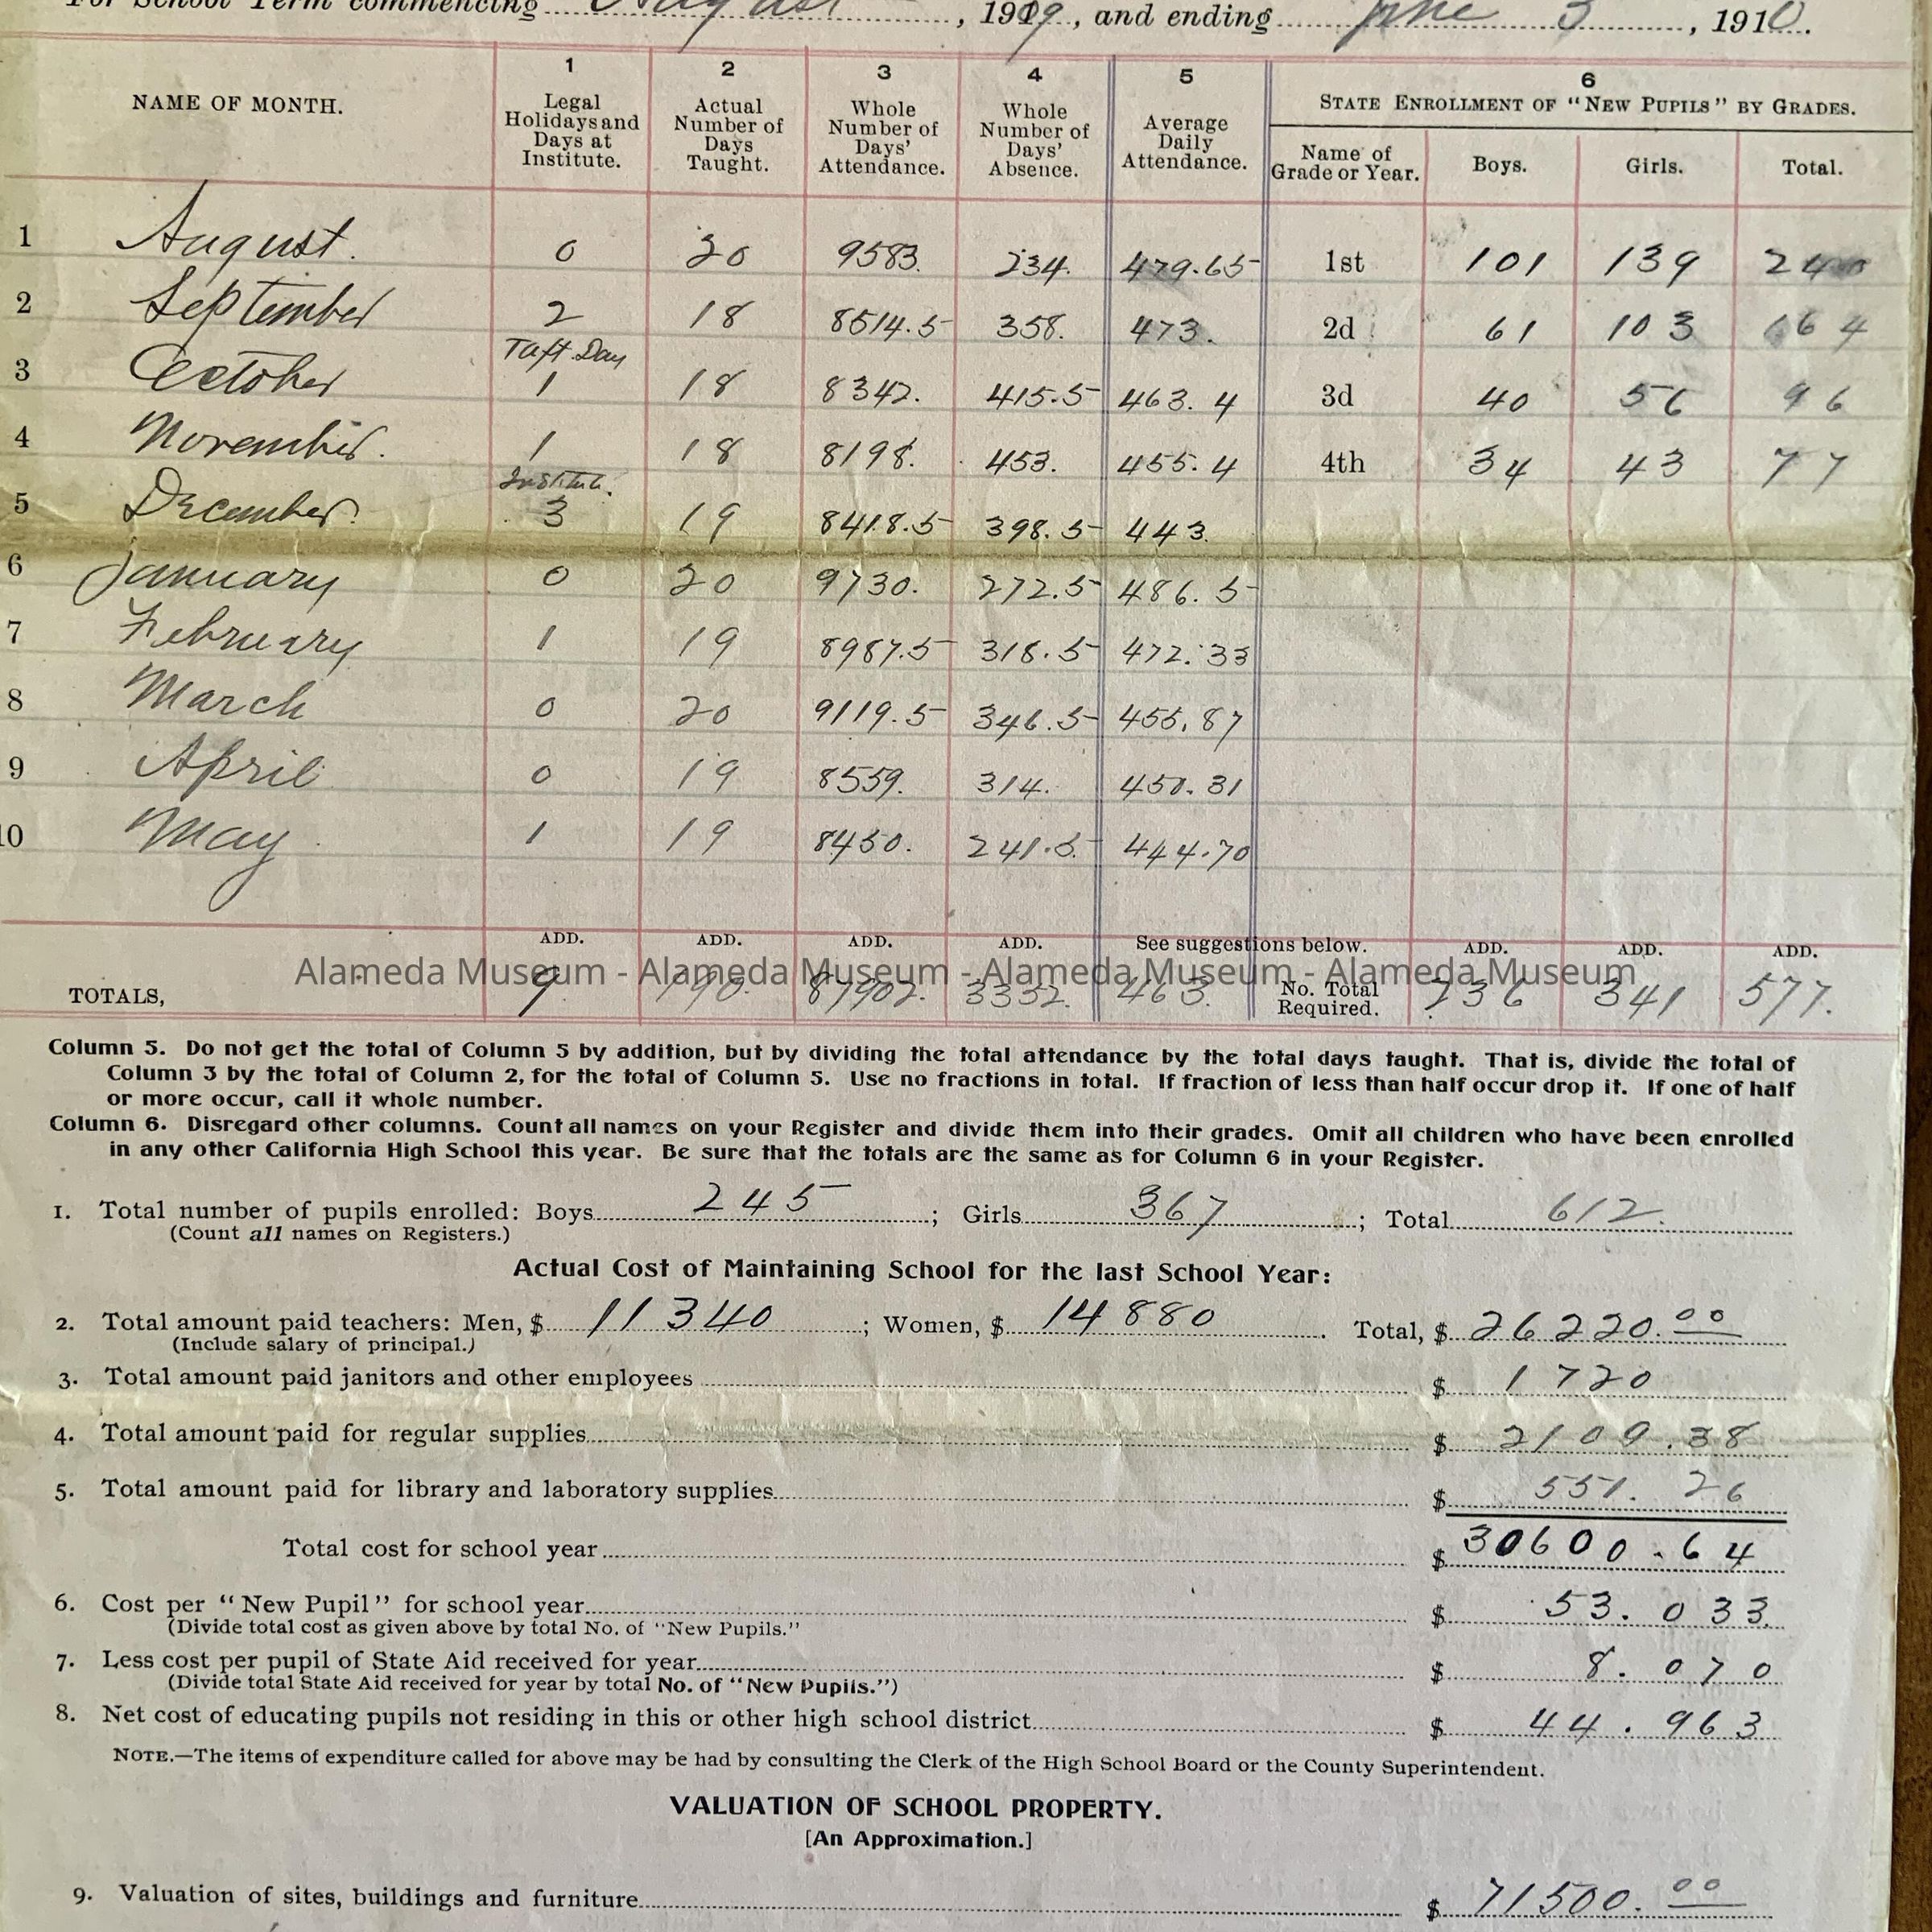 For School Term commencing August, 1909, and ending June 3, 1910.
NAME OF MONTH.
1 Legal Holidays and Days at Institute.
2 Actual Number of Days Taught.
3 Whole Number of Days' Attendance.
4 Whole Number of Days' Absence.
5 Average Daily Attendance.
6 STATE ENROLLMENT OF "NEW PUPILS" BY GRADES.
Name of Grade or Year. Boys. Girls. Total.
1 August. 0 20 9583. 234. 479.65 1st 101 139 240
2 September 2 18 8514.5 358. 473. 2d 61 103 164
Taft Day
3 October 1 18 8342. 415.5 463.4 3d 40 56 96
4 November. 1 18 8198. 453. 455.4 4th 34 43 77
Institute.
5 December. 3 19 8418.5 398.5 443.
6 January 0 20 9730. 272.5 486.5
7 February 1 19 8987.5 318.5 472.33
8 March 0 20 9119.5 346.5 455.87
9 April 0 19 8559. 314. 450.31
10 May 1 19 8450. 241.5. 444.70
ADD. ADD. ADD. ADD. See suggestions below. ADD. ADD. ADD.
Alameda Museum - Alameda Museum - Alameda Museum - Alameda Museum
TOTALS, 9. 190. 87902. 3352. 463. No. Total Required. 236 341 577.
Column 5. Do not get the total of Column 5 by addition, but by dividing the total attendance by the total days taught. That is, divide the total of
Column 3 by the total of Column 2, for the total of Column 5. Use no fractions in total. If fraction of less than half occur drop it. If one of half
or more occur, call it whole number.
Column 6. Disregard other columns. Count all names on your Register and divide them into their grades. Omit all children who have been enrolled
in any other California High School this year. Be sure that the totals are the same as for Column 6 in your Register.
1. Total number of pupils enrolled: Boys 245; Girls 367; Total 612.
(Count all names on Registers.)
Actual Cost of Maintaining School for the last School Year:
2. Total amount paid teachers: Men, $ 11340; Women, $ 14880. Total, $ 26220.00
(Include salary of principal.)
3. Total amount paid janitors and other employees $ 1720
4. Total amount paid for regular supplies $ 2109.38
5. Total amount paid for library and laboratory supplies $ 551.26
Total cost for school year $ 30600.64
6. Cost per "New Pupil" for school year $ 53.033.
(Divide total cost as given above by total No. of "New Pupils."
7. Less cost per pupil of State Aid received for year $ 8.070
(Divide total State Aid received for year by total No. of "New Pupils.")
8. Net cost of educating pupils not residing in this or other high school district $ 44.963
NOTE.—The items of expenditure called for above may be had by consulting the Clerk of the High School Board or the County Superintendent.
VALUATION OF SCHOOL PROPERTY.
[An Approximation.]
9. Valuation of sites, buildings and furniture $ 71500.00